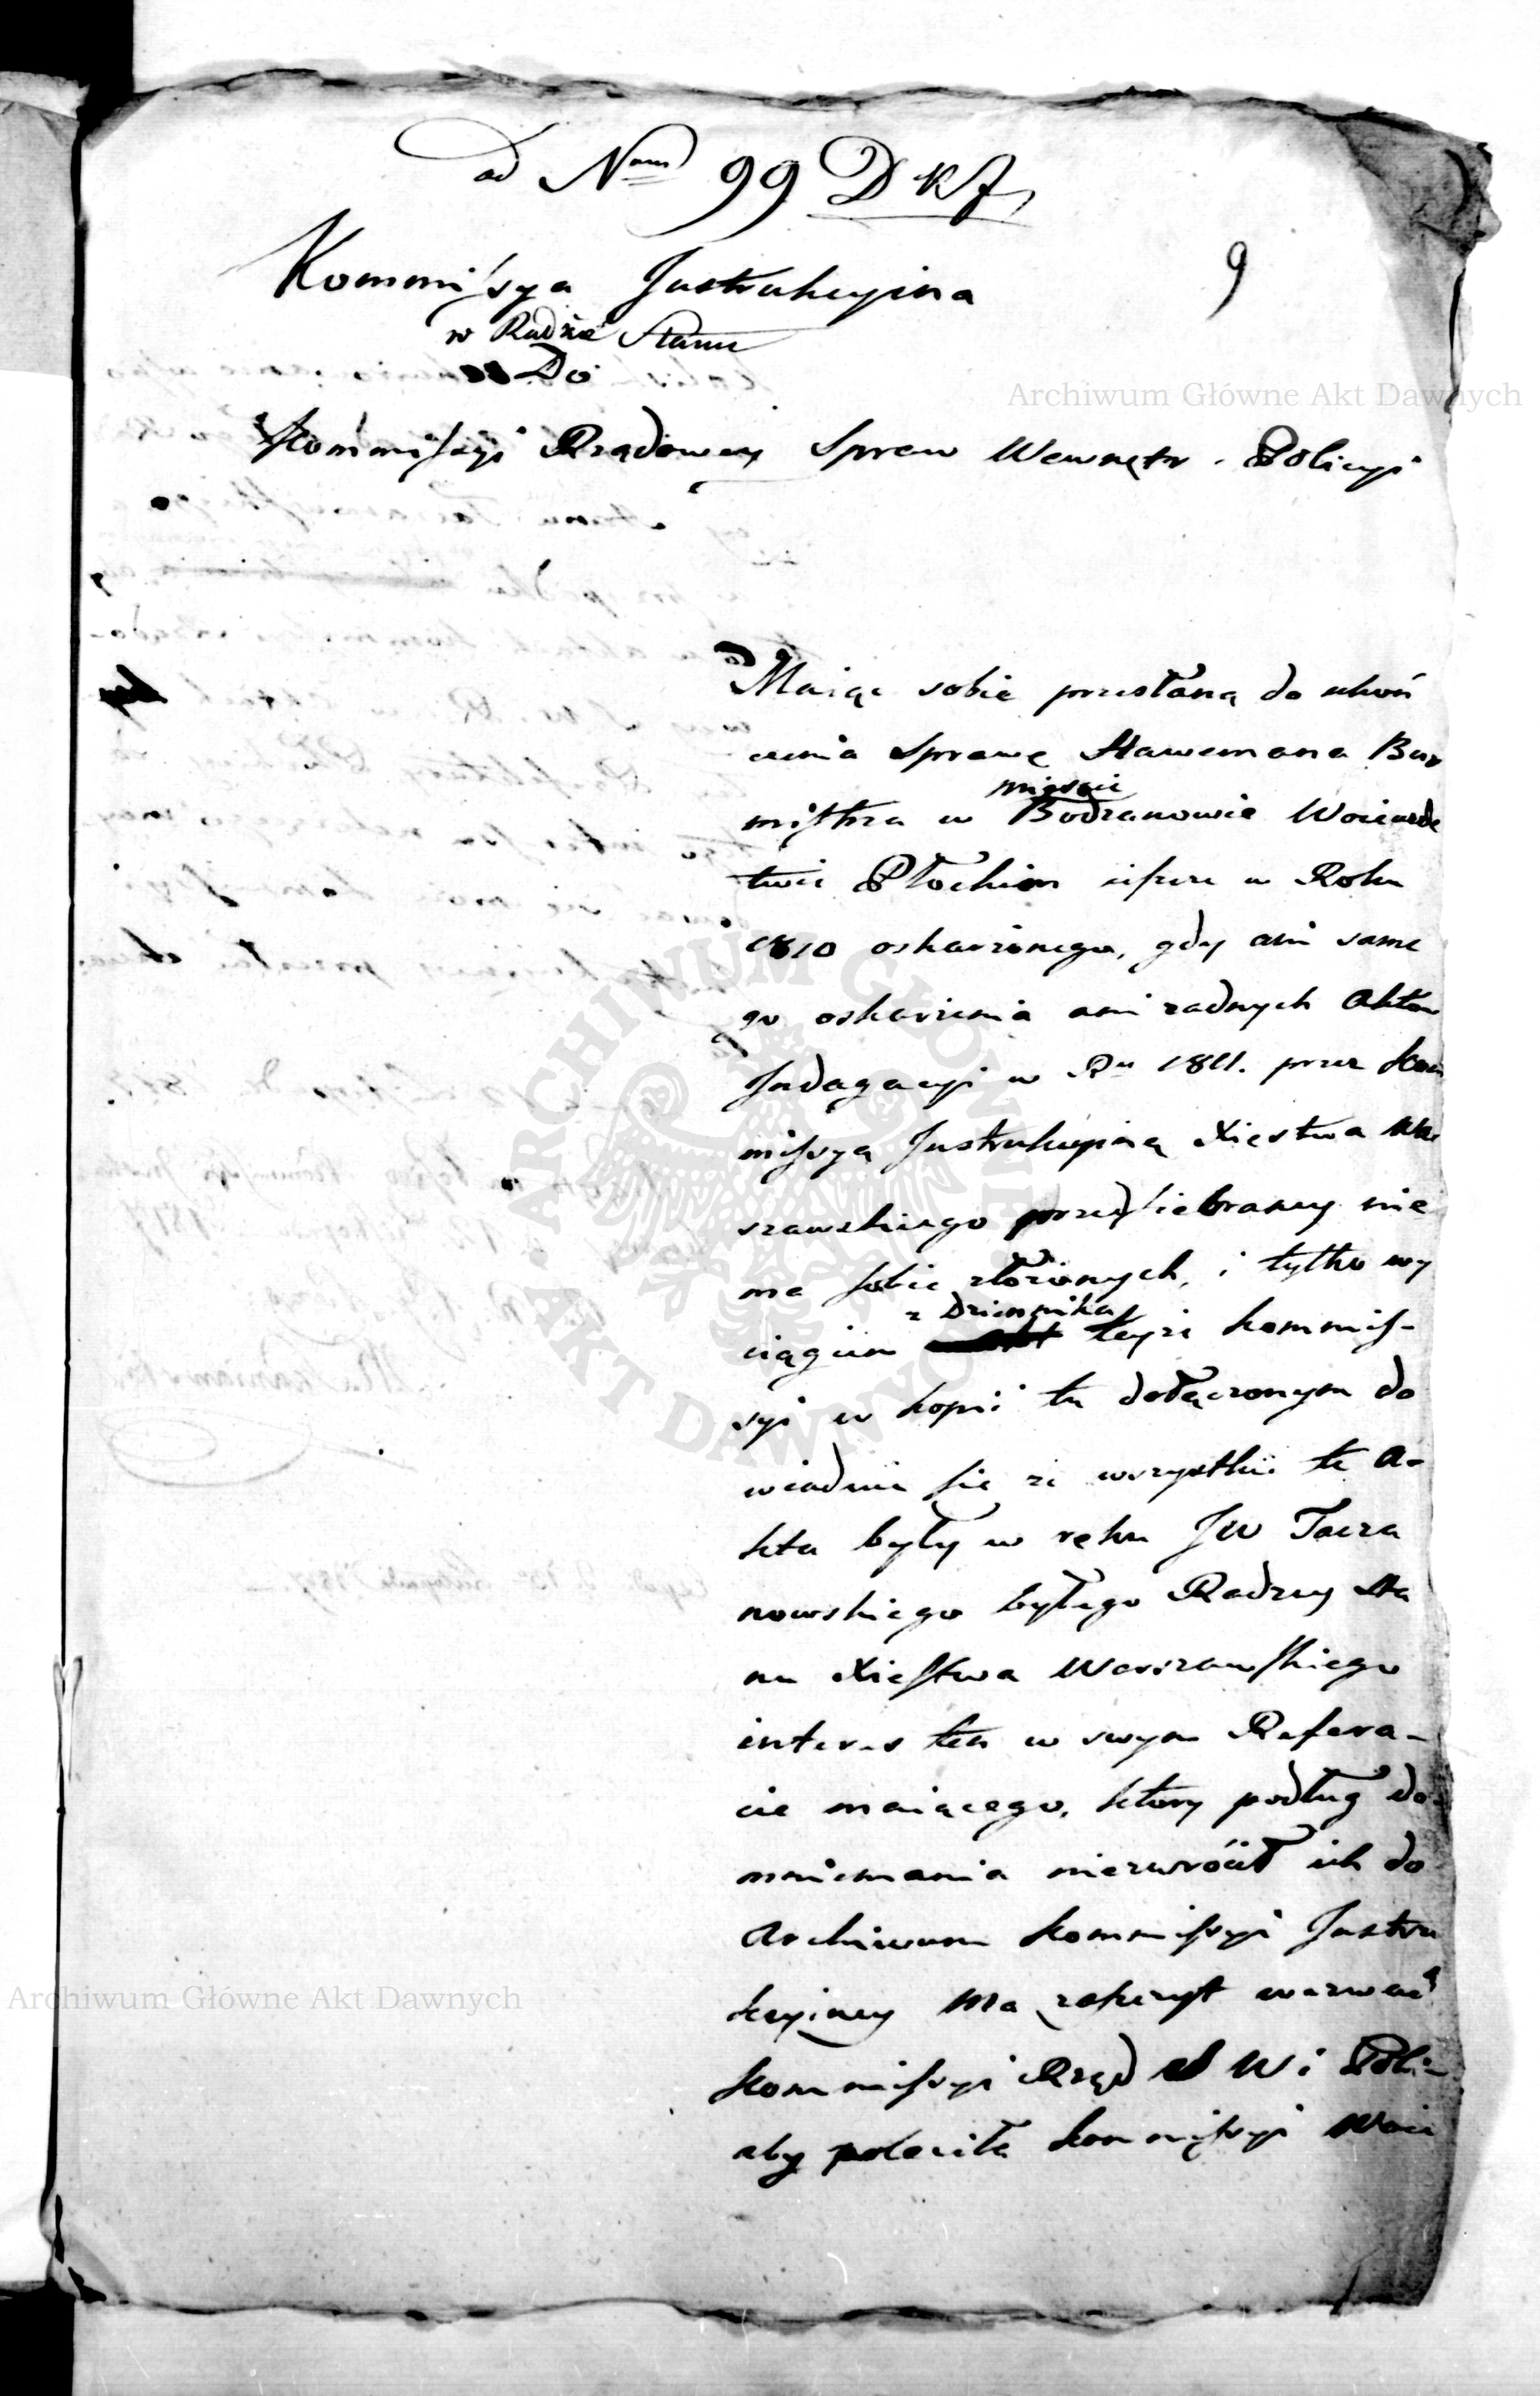 ad N<sup>rum</sup> 99 D K J
9
Kommissya Instrukcyina
w Radzie Stanu
Do
Kommissyi Rządowey Spraw Wewnętr. Policyi
Maiąc sobie przesłaną do ukoń
czenia Sprawę Hawemana Bur
mistrza w mieście Bodzanowie Woiewodz
twie Płockim ieszcze w Roku
1810 oskarżonego, gdy ani same
go oskarżenia ani żadnych Aktow
Indagacyi w R<sup>u</sup> 1811. przez Kom
missyą Instrukcyiną Xięstwa War
szawskiego przedsiebraney nie
ma sobie złożonych, i tylko wy
ciągiem z Dziennika teyże Kommis-
syi w kopii tu dołączonym do
wiaduie się że wszystkie te A-
kta były w ręku JW Tacza
nowskiego byłego Radzcy Sta
nu Xięstwa Warszawskiego
interes ten w swym Refera-
cie maiącego, który podług do-
mniemania niezwrócił ich do
Archiwum Kommissyi Instru
kcyiney Ma zaszczyt wezwać
Kommissyi Rząd S W i Poli-
aby poleciła Kommissyi Woie
Archiwum Główne Akt Dawnych
Archiwum Główne Akt Dawnych
ARCHIWUM GŁÓWNE AKT DAWNYCH